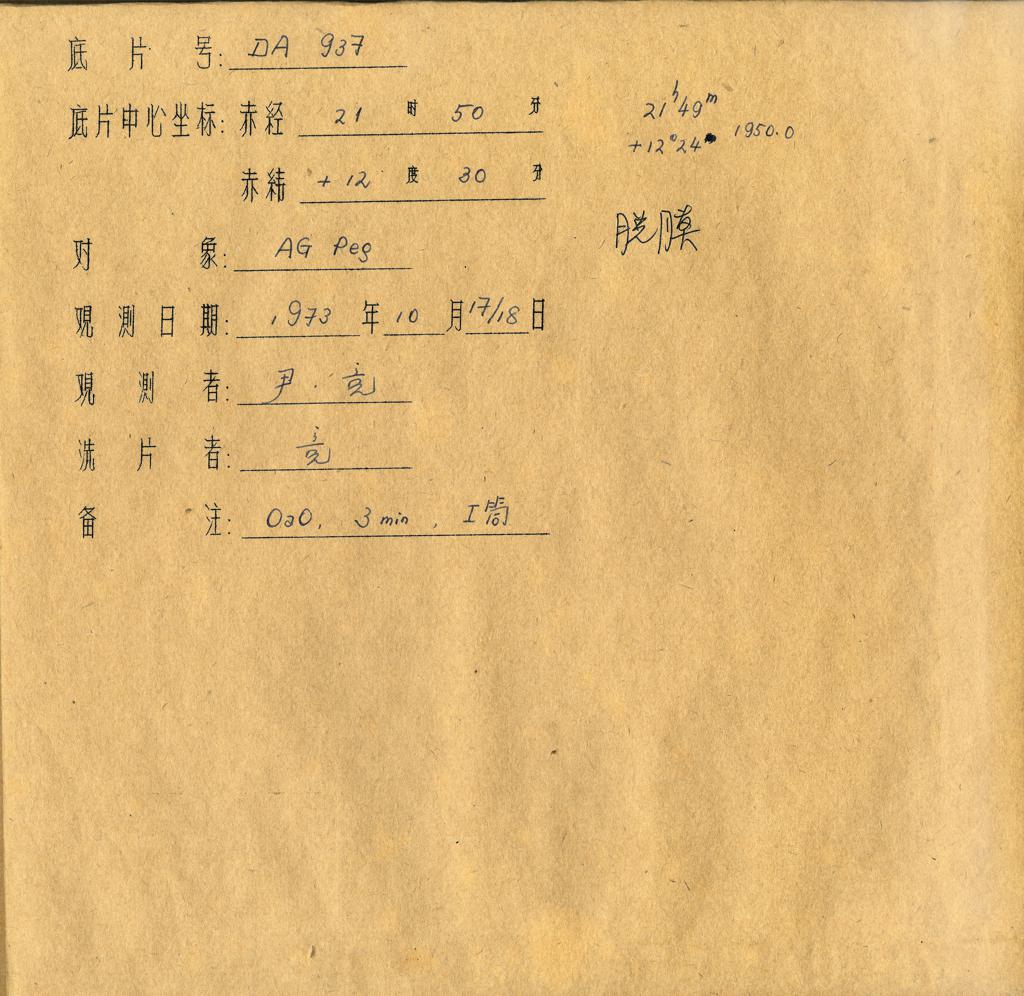 底片号: DA 937
底片中心坐标: 赤经 21 时 50 分
21h49m
+12°24 1950.0
赤纬 +12 度 30 分
脱膜
对象: AG Peg
观测日期: 1973 年 10 月 17/18 日
观测者: 尹.
洗片者:
备注: OaO, 3min, I筒